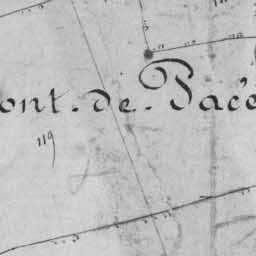 ont. de. Pacé
119